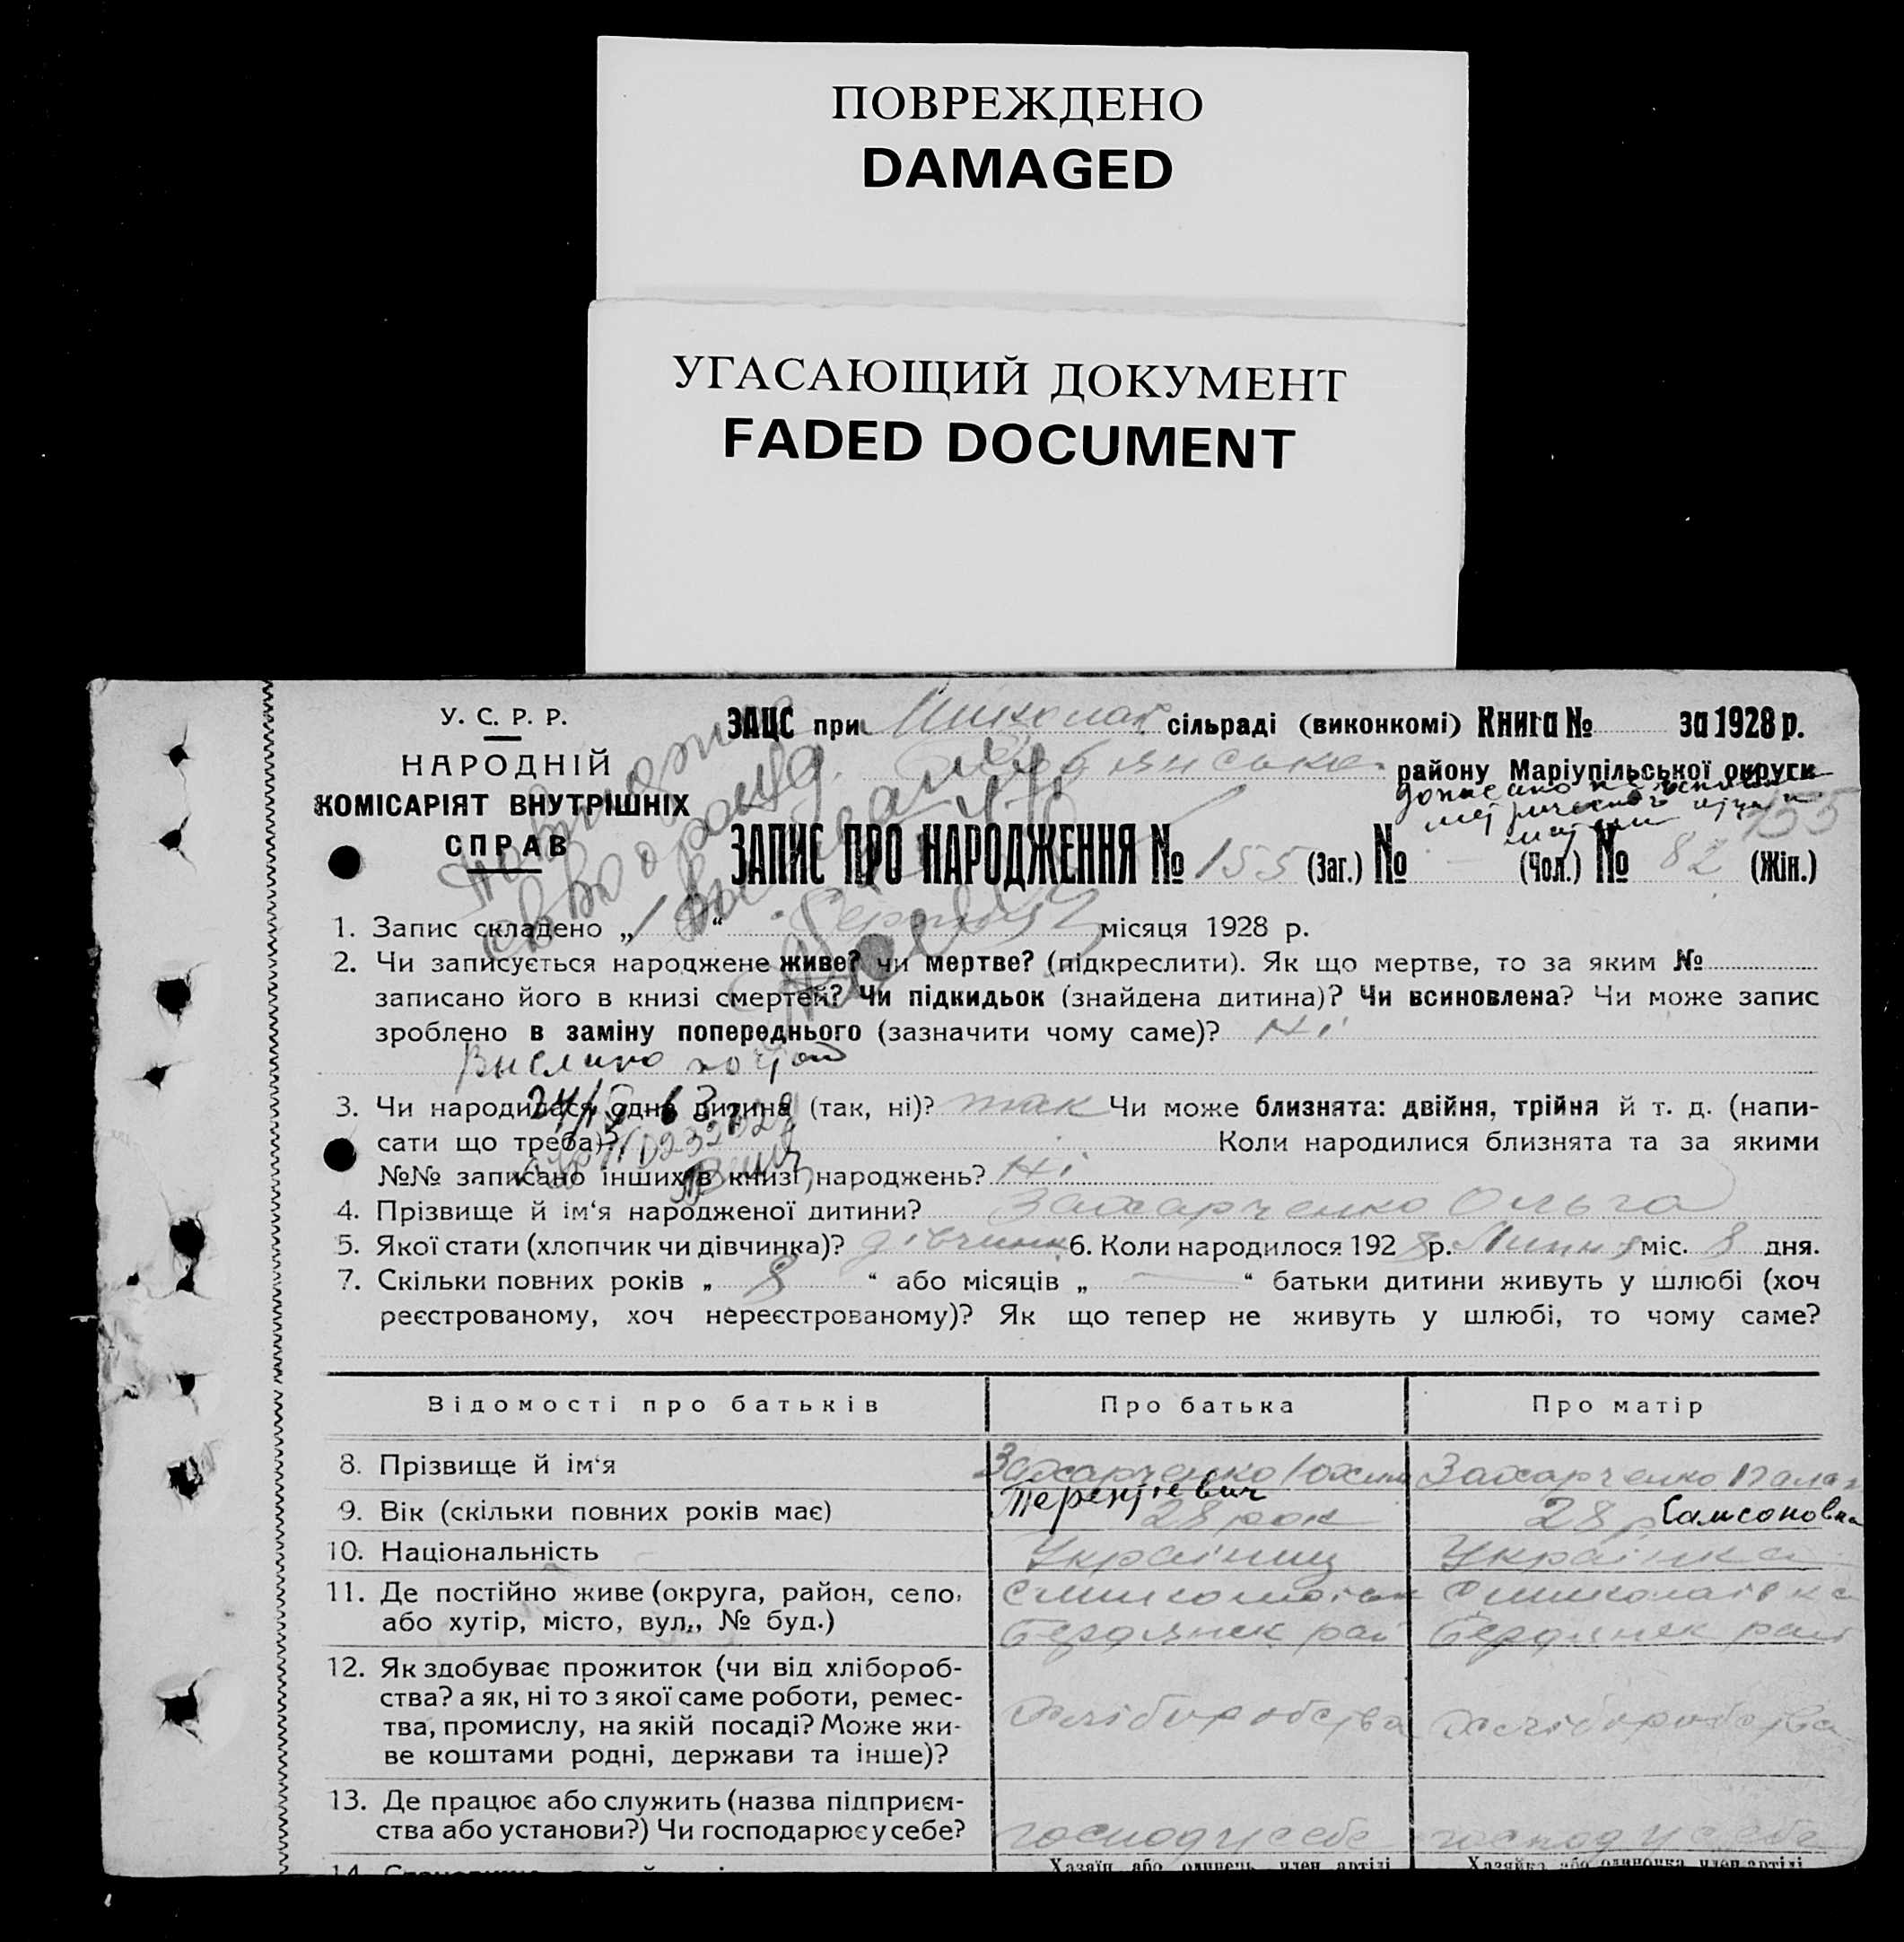 ПОВРЕЖДЕНО
DAMAGED
УГАСАЮЩИЙ ДОКУМЕНТ
FADED DOCUMENT
У. С. Р. Р.
НАРОДНІЙ
КОМІСАРІЯТ ВНУТРІШНІХ
СПРАВ
ЗАЦС при сільраді (виконкомі) Книга № за 1928 р.
району Маріупільської округи
155
ЗАПИС ПРО НАРОДЖЕННЯ № 155 (Заг.) № — (Чол.) № 82 (Жін.)
1. Запис складено „ “ місяця 1928 р.
2. Чи записується народжене живе? чи мертве? (підкреслити). Як що мертве, то за яким №
записано його в книзі смертей? Чи підкидьок (знайдена дитина)? Чи всиновлена? Чи може запис
зроблено в заміну попереднього (зазначити чому саме)? Ні
3. Чи народилася одна дитина (так, ні)? так Чи може близнята: двійня, трійня й т. д. (напи-
сати що треба)? Коли народилися близнята та за якими
№№ записано інших в книзі народжень? Ні
4. Прізвище й ім‘я народженої дитини? Захарченко Ольга
5. Якої стати (хлопчик чи дівчинка)? дівчинк 6. Коли народилося 192 8 р. Липня міс. 8 дня.
7. Скільки повних років „ 8 “ або місяців „ — “ батьки дитини живуть у шлюбі (хоч
реєстрованому, хоч нереєстрованому)? Як що тепер не живуть у шлюбі, то чому саме?
Відомості про батьків Про батька Про матір
8. Прізвище й ім‘я Захарченко Захарченко
Терентіевич Самсоновна
9. Вік (скільки повних років має) 28 рок 28 р
10. Національність Українец Українка
11. Де постійно живе (округа, район, село,
або хутір, місто, вул., № буд.) Бердянск рай Бердянск рай
12. Як здобуває прожиток (чи від хлібороб-
ства? а як, ні то з якої саме роботи, ремес-
тва, промислу, на якій посаді? Може жи-
ве коштами родні, держави та інше)? хліборобства хліборобства
13. Де працює або служить (назва підприєм-
ства або установи?) Чи господарює у себе? господ у себе господ у себе
Хазяїн або одинець член артілі Хазяйка або одиночка член артілі